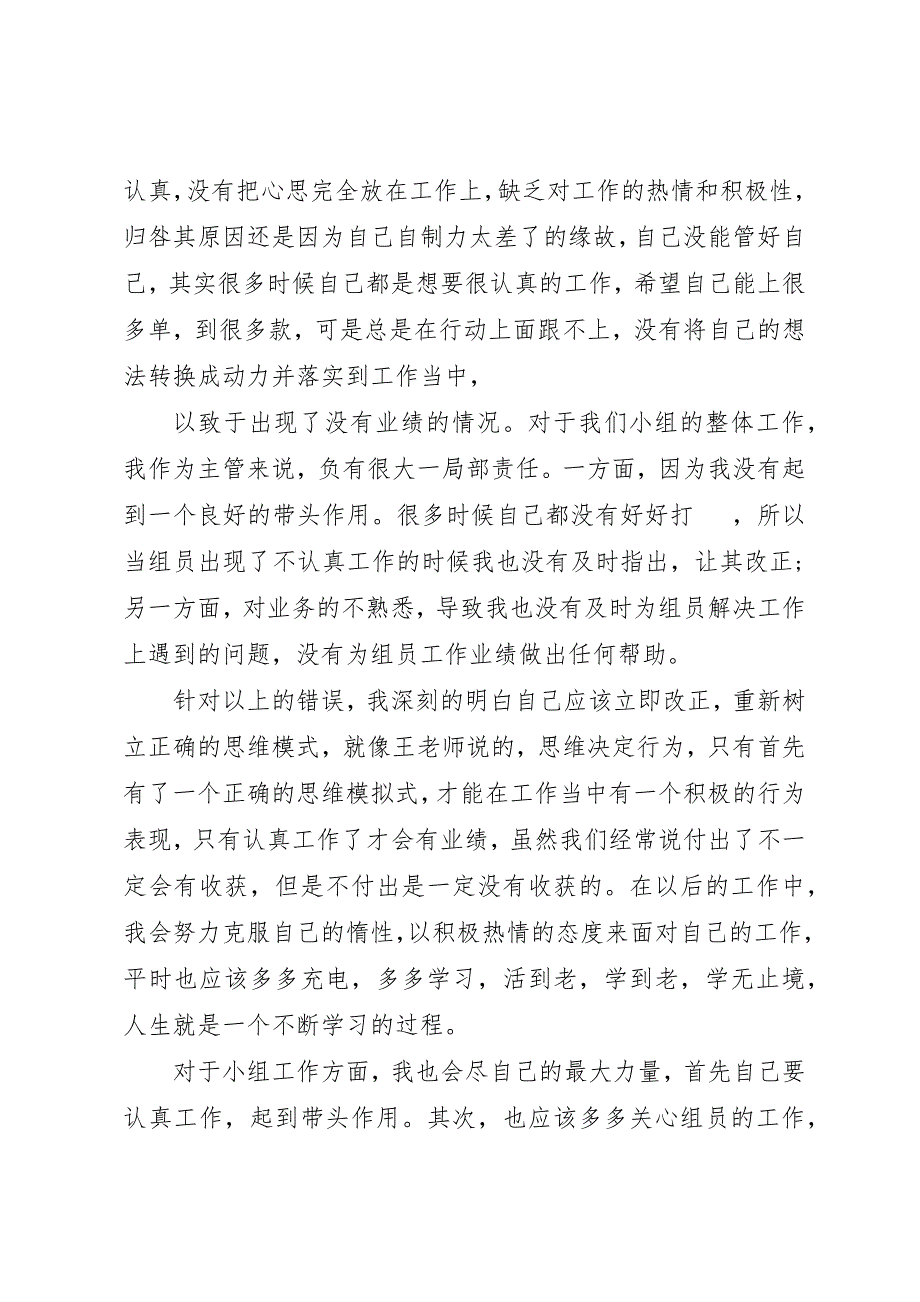 认真，没有把心思完全放在工作上，缺乏对工作的热情和积极性，
归咎其原因还是因为自己自制力太差了的缘故，自己没能管好自
己，其实很多时候自己都是想要很认真的工作，希望自己能上很
多单，到很多款，可是总是在行动上面跟不上，没有将自己的想
法转换成动力并落实到工作当中，
以致于出现了没有业绩的情况。对于我们小组的整体工作，
我作为主管来说，负有很大一局部责任。一方面，因为我没有起
到一个良好的带头作用。很多时候自己都没有好好打　，所以
当组员出现了不认真工作的时候我也没有及时指出，让其改正;
另一方面，对业务的不熟悉，导致我也没有及时为组员解决工作
上遇到的问题，没有为组员工作业绩做出任何帮助。
针对以上的错误，我深刻的明白自己应该立即改正，重新树
立正确的思维模式，就像王老师说的，思维决定行为，只有首先
有了一个正确的思维模拟式，才能在工作当中有一个积极的行为
表现，只有认真工作了才会有业绩，虽然我们经常说付出了不一
定会有收获，但是不付出是一定没有收获的。在以后的工作中，
我会努力克服自己的惰性，以积极热情的态度来面对自己的工作，
平时也应该多多充电，多多学习，活到老，学到老，学无止境，
人生就是一个不断学习的过程。
对于小组工作方面，我也会尽自己的最大力量，首先自己要
认真工作，起到带头作用。其次，也应该多多关心组员的工作，